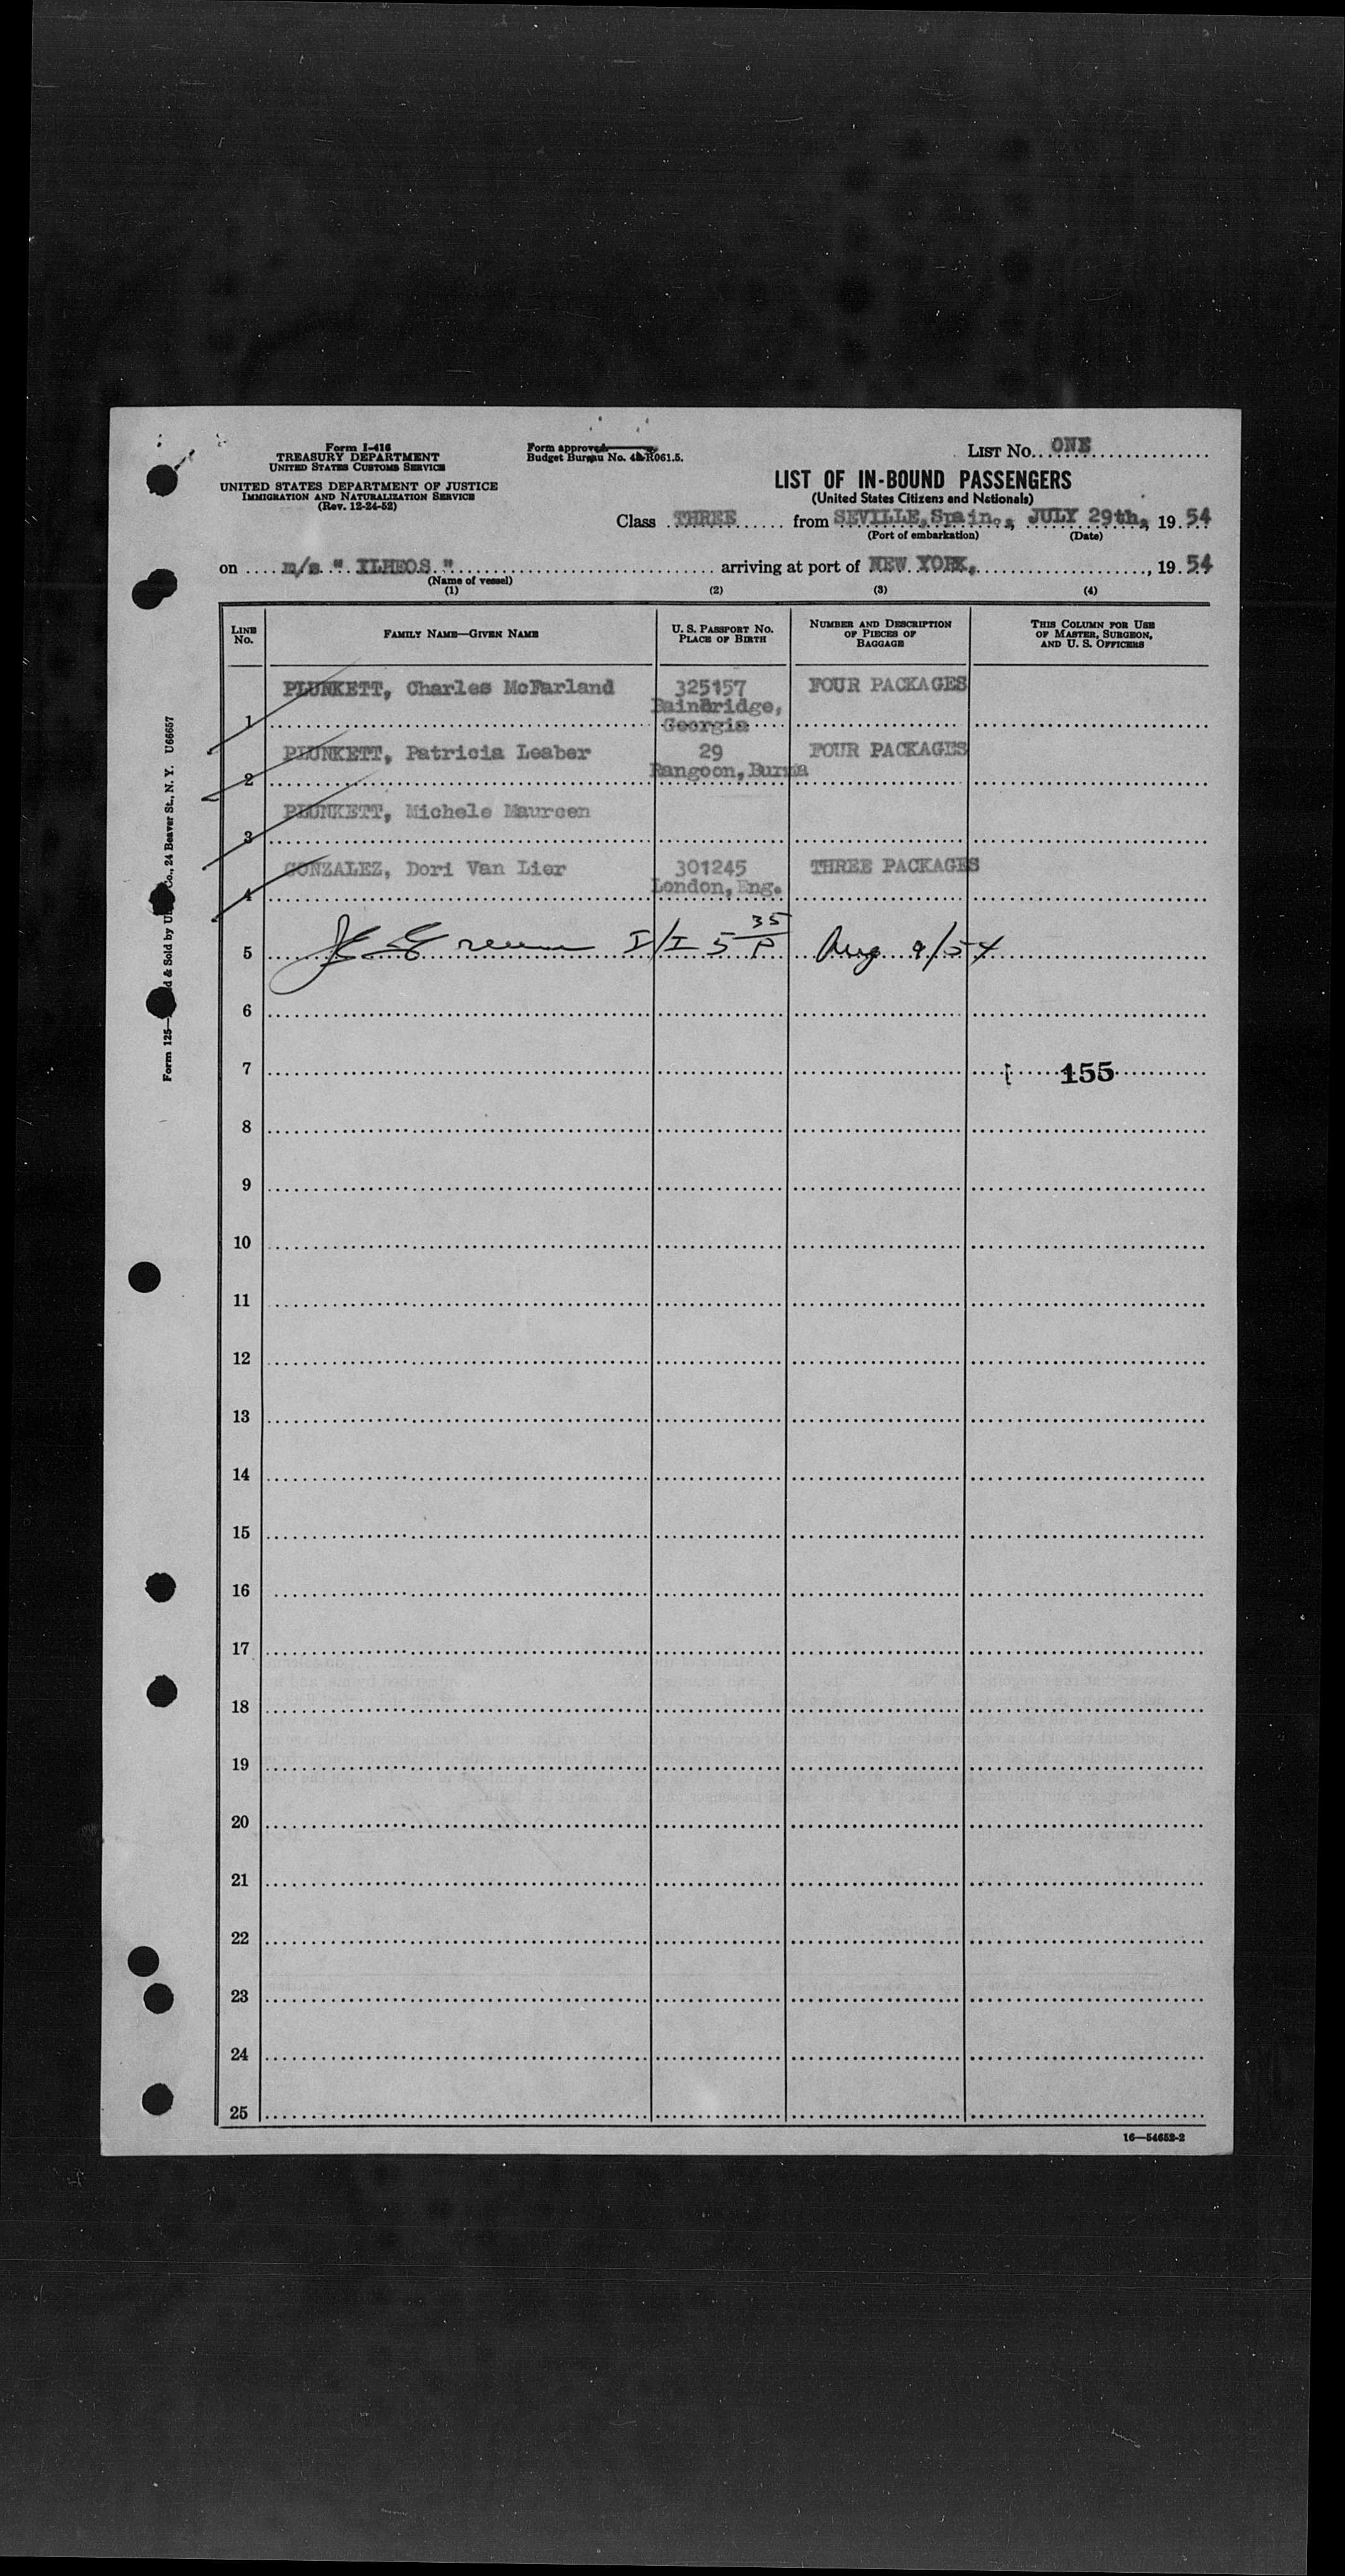 Form I-416
TREASURY DEPARTMENT
UNITED STATES CUSTOMS SERVICE
UNITED STATES DEPARTMENT OF JUSTICE
IMMIGRATION AND NATURALIZATION SERVICE
(Rev. 12-24-52)
Form approved
Budget Bureau No. 43-R061.5.
LIST No. ONE
LIST OF IN-BOUND PASSENGERS
(United States Citizens and Nationals)
Class THREE from SEVILLE, Spain., JULY 29th, 19 54
(Port of embarkation) (Date)
on m/s " ILHEOS " arriving at port of NEW YORK, , 19 54
(Name of vessel)
(1) (2) (3) (4)
LINE No. FAMILY NAME—GIVEN NAME U. S. PASSPORT NO. PLACE OF BIRTH NUMBER AND DESCRIPTION OF PIECES OF BAGGAGE THIS COLUMN FOR USE OF MASTER, SURGEON, AND U. S. OFFICERS
1 PLUNKETT, Charles McFarland 325157 FOUR PACKAGES
Bainbridge,
Georgia
2 PLUNKETT, Patricia Leaber 29 FOUR PACKAGES
Rangoon, Burma
3 PLUNKETT, Michele Maureen
4 GONZALEZ, Dori Van Lier 301245 THREE PACKAGES
London, Eng.
5 I/I 5 35 P Aug 9/54
6
7 155
8
9
10
11
12
13
14
15
16
17
18
19
20
21
22
23
24
25
16—54652-2
Form 125— & Sold by Co., 24 Beaver St., N. Y. U66657